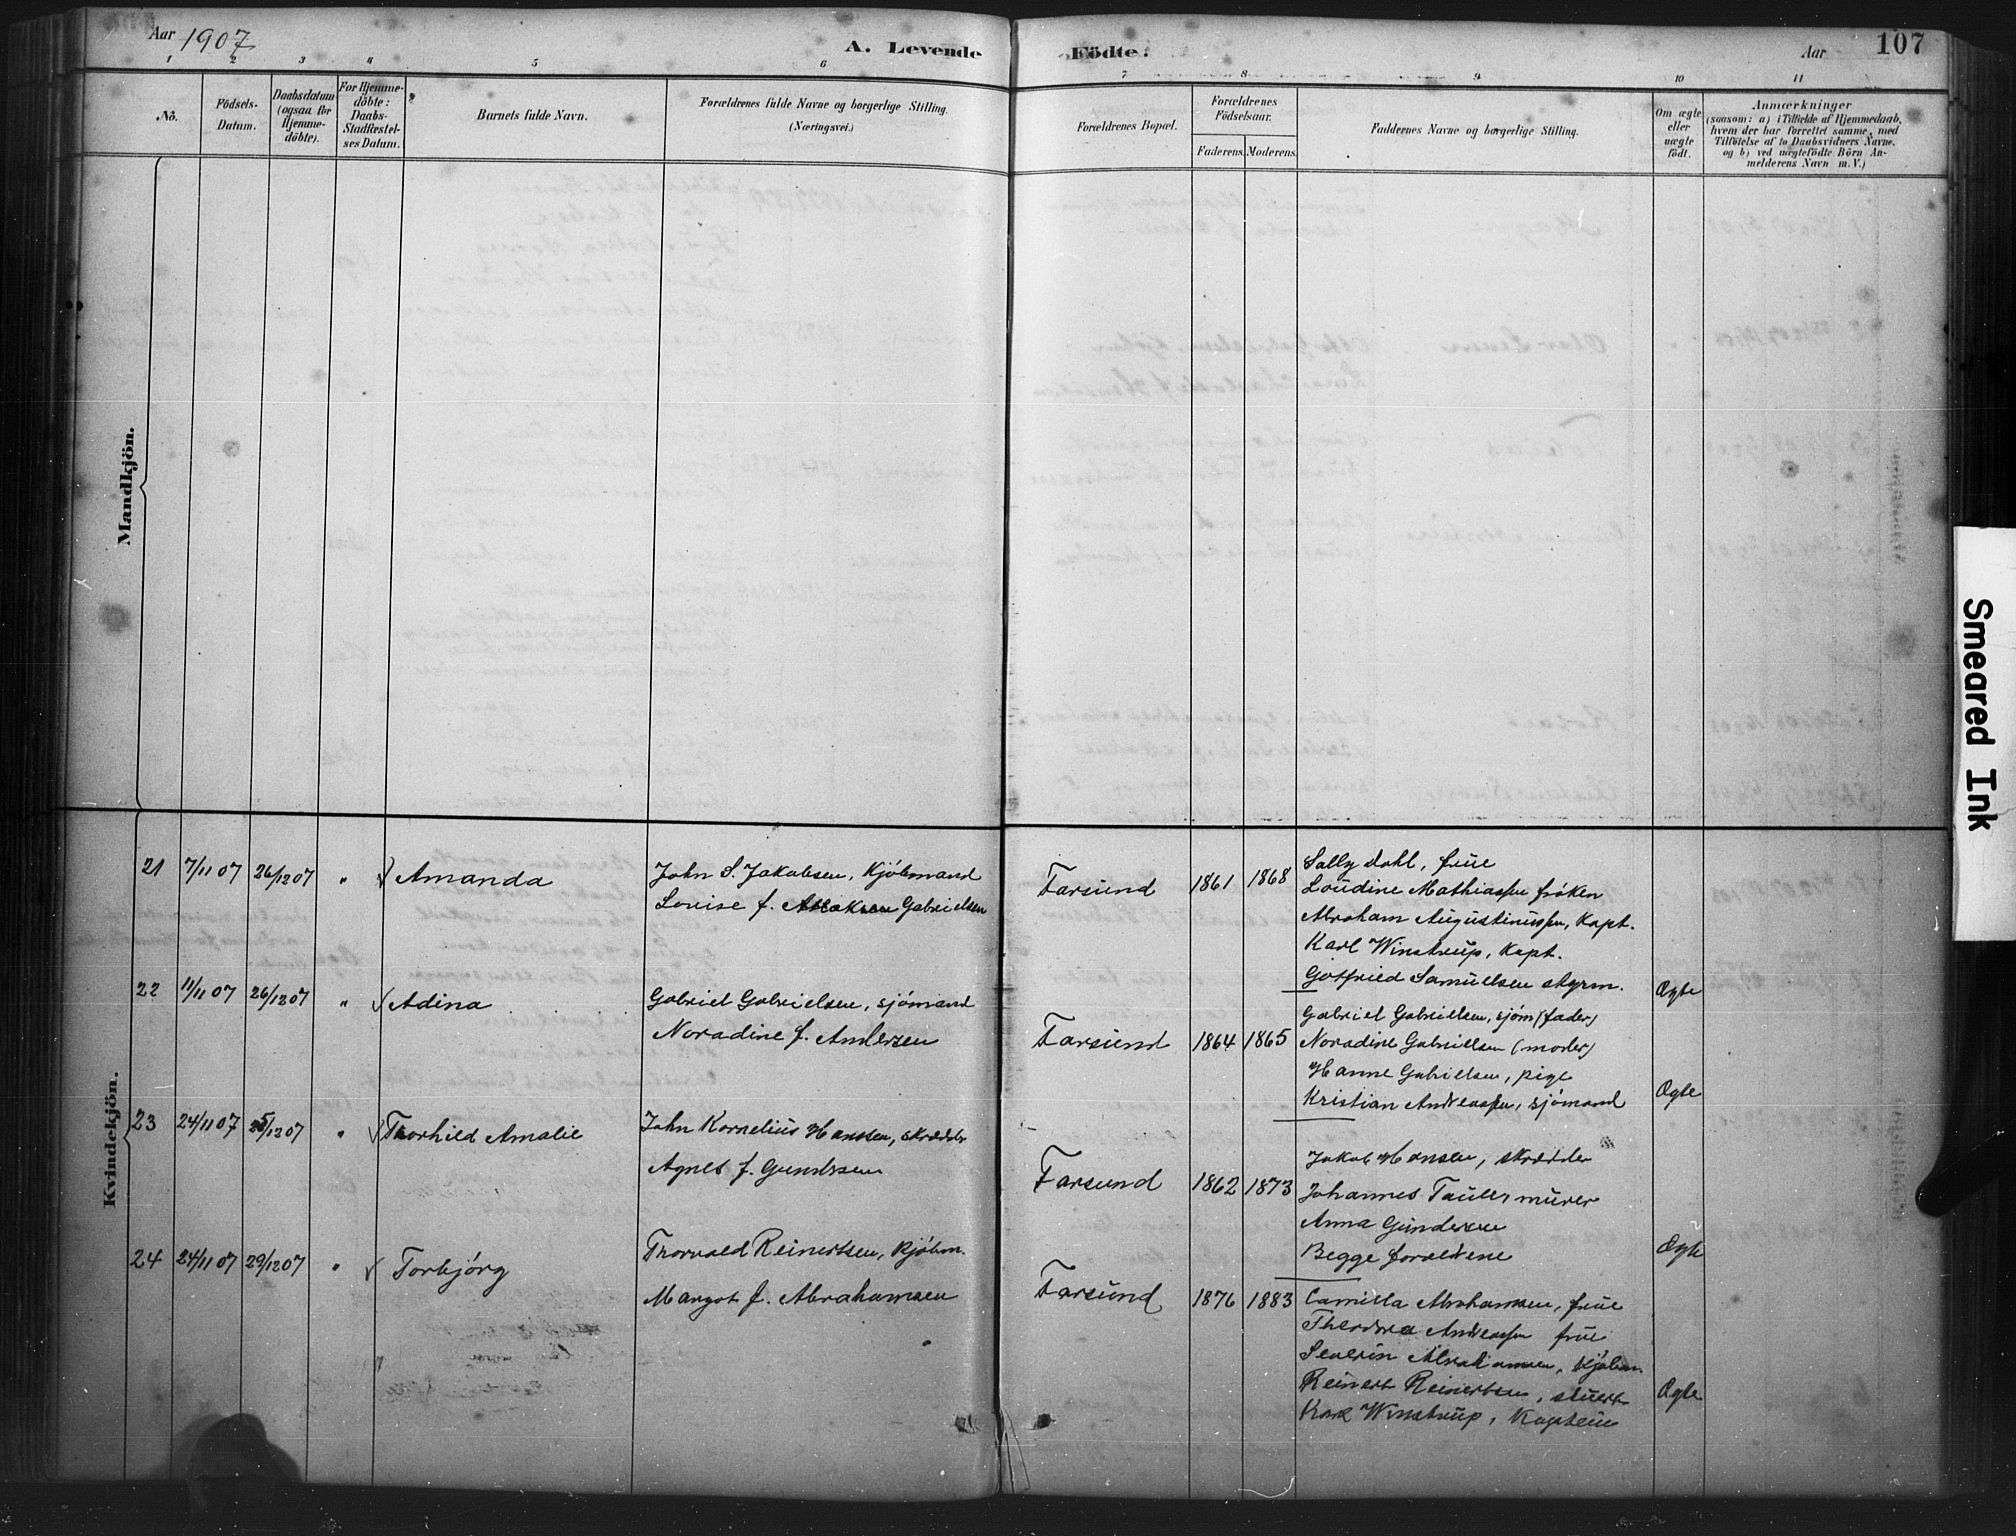 Aar 1907
A. Levende Födte.
Aar
107
1 2 3 4 5 6 7 8 9 10 11
No.
Födsels-
Datum.
Daabsdatum
(ogsaa for
Hjemme-
döbte).
For Hjemme-
döbte:
Daabs-
Stadfæstel-
ses Datum.
Barnets fulde Navn.
Forældrenes fulde Navne og borgerlige Stilling.
(Næringsvei.)
Forældrenes Bopæl.
Forældrenes
Födselsaar.
Faderens. Moderens.
Faddernes Navne og borgerlige Stilling.
Om ægte
eller
uægte
födt.
Anmærkninger
(saasom: a) i Tilfælde af Hjemmedaab,
hvem der har forrettet samme, med
Tilföielse af to Daabsvidners Navne,
og b) ved uægtefödte Börn An-
melderens Navn m. V.)
Mandkjön.
Kvindekjön.
21 7/11 07 26/12 07 " Amanda
John S. Jakobsen, Kjöbmand
Louise f. Gabrielsen
Farsund 1861 1868
Sally Dahl, frue
Loudine Mathiassen fröken
Abraham Augustinussen, Kapt.
Karl Winstrup, Kapt.
Gotfried Samuelsen styrm.
Ægte
22 11/11 07 26/12 07 " Adina
Gabriel Gabrielsen, sjömand
Noradine f. Andersen
Farsund 1864 1865
Gabriel Gabrielsen, sjöm (fader)
Noradine Gabrielsen (moder)
Hanne Gabrielsen, pige
Kristian Andreassen, sjömand
Ægte
23 24/11 07 25/12 07 " Thorhild Amalie
John Kornelius Hansen, skrædder
Agnes f. Gundersen
Farsund 1862 1873
Jakob Hansen, skrædder
Johannes Tauler murer
Anna Gundersen
Begge forældrene
Ægte
24 24/11 07 29/12 07 " Torbjörg
Thorvald Reinertsen, Kjöbm.
Margot f. Abrahamsen
Farsund 1876 1883
Camilla Abrahamsen, frue
Theodora Andreassen frue
Severin Abrahamsen, Kjöbm.
Reinert Reinertsen, stuert
Karl Winstrup, Kaptein
Ægte
Smeared Ink